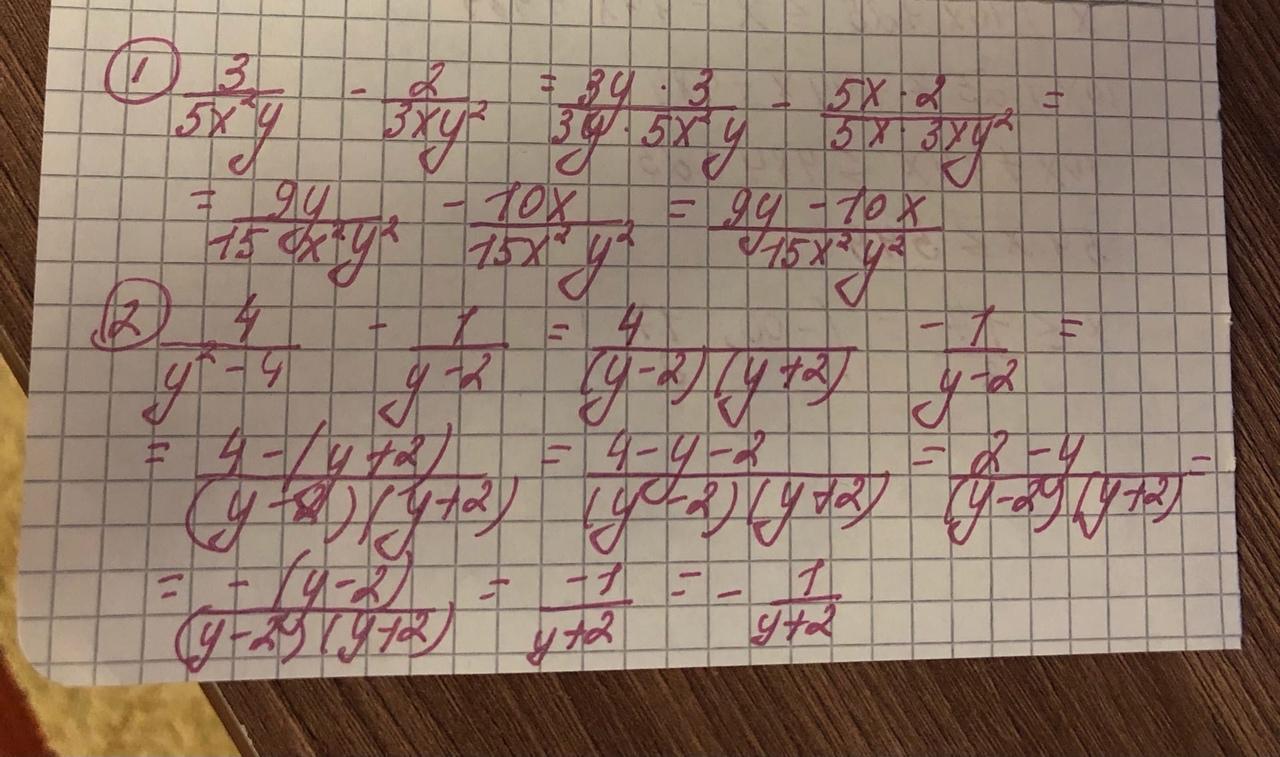 ① 3/(5x²y) - 2/(3xy²) = (3y · 3)/(3y · 5x²y) - (5x · 2)/(5x · 3xy²) =
= 9y/(15x²y²) - 10x/(15x²y²) = (9y - 10x)/(15x²y²)
② 4/(y² - 4) - 1/(y - 2) = 4/((y - 2)(y + 2)) - 1/(y - 2) =
= (4 - (y + 2))/((y - 2)(y + 2)) = (4 - y - 2)/((y - 2)(y + 2)) = (2 - y)/((y - 2)(y + 2)) =
= (-(y - 2))/((y - 2)(y + 2)) = (-1)/(y + 2) = - 1/(y + 2)